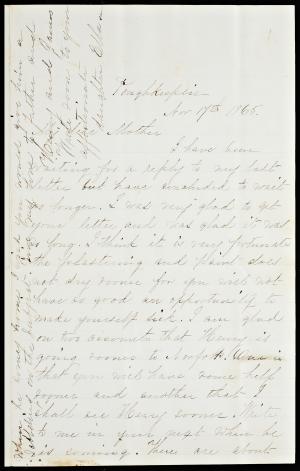 Poughkeepsie
Nov 17th 1865.
Mother
I have been
waiting for a reply to my last
letter but have concluded to wait
no longer. I was very glad to get
your letter, and was glad it was
so long. I think it is very fortunate
the plastering and paint does
not dry sooner for you will not
have so good an opportunity to
make yourself sick. I am glad
on two accounts that Henry is
going sooner to One is
that you will have some help
sooner and another that I
shall see Henry sooner. Write
to me in your next when he
is coming. There are about
when he
father and
and James
Write soon to your
affectionate
daughter Ella